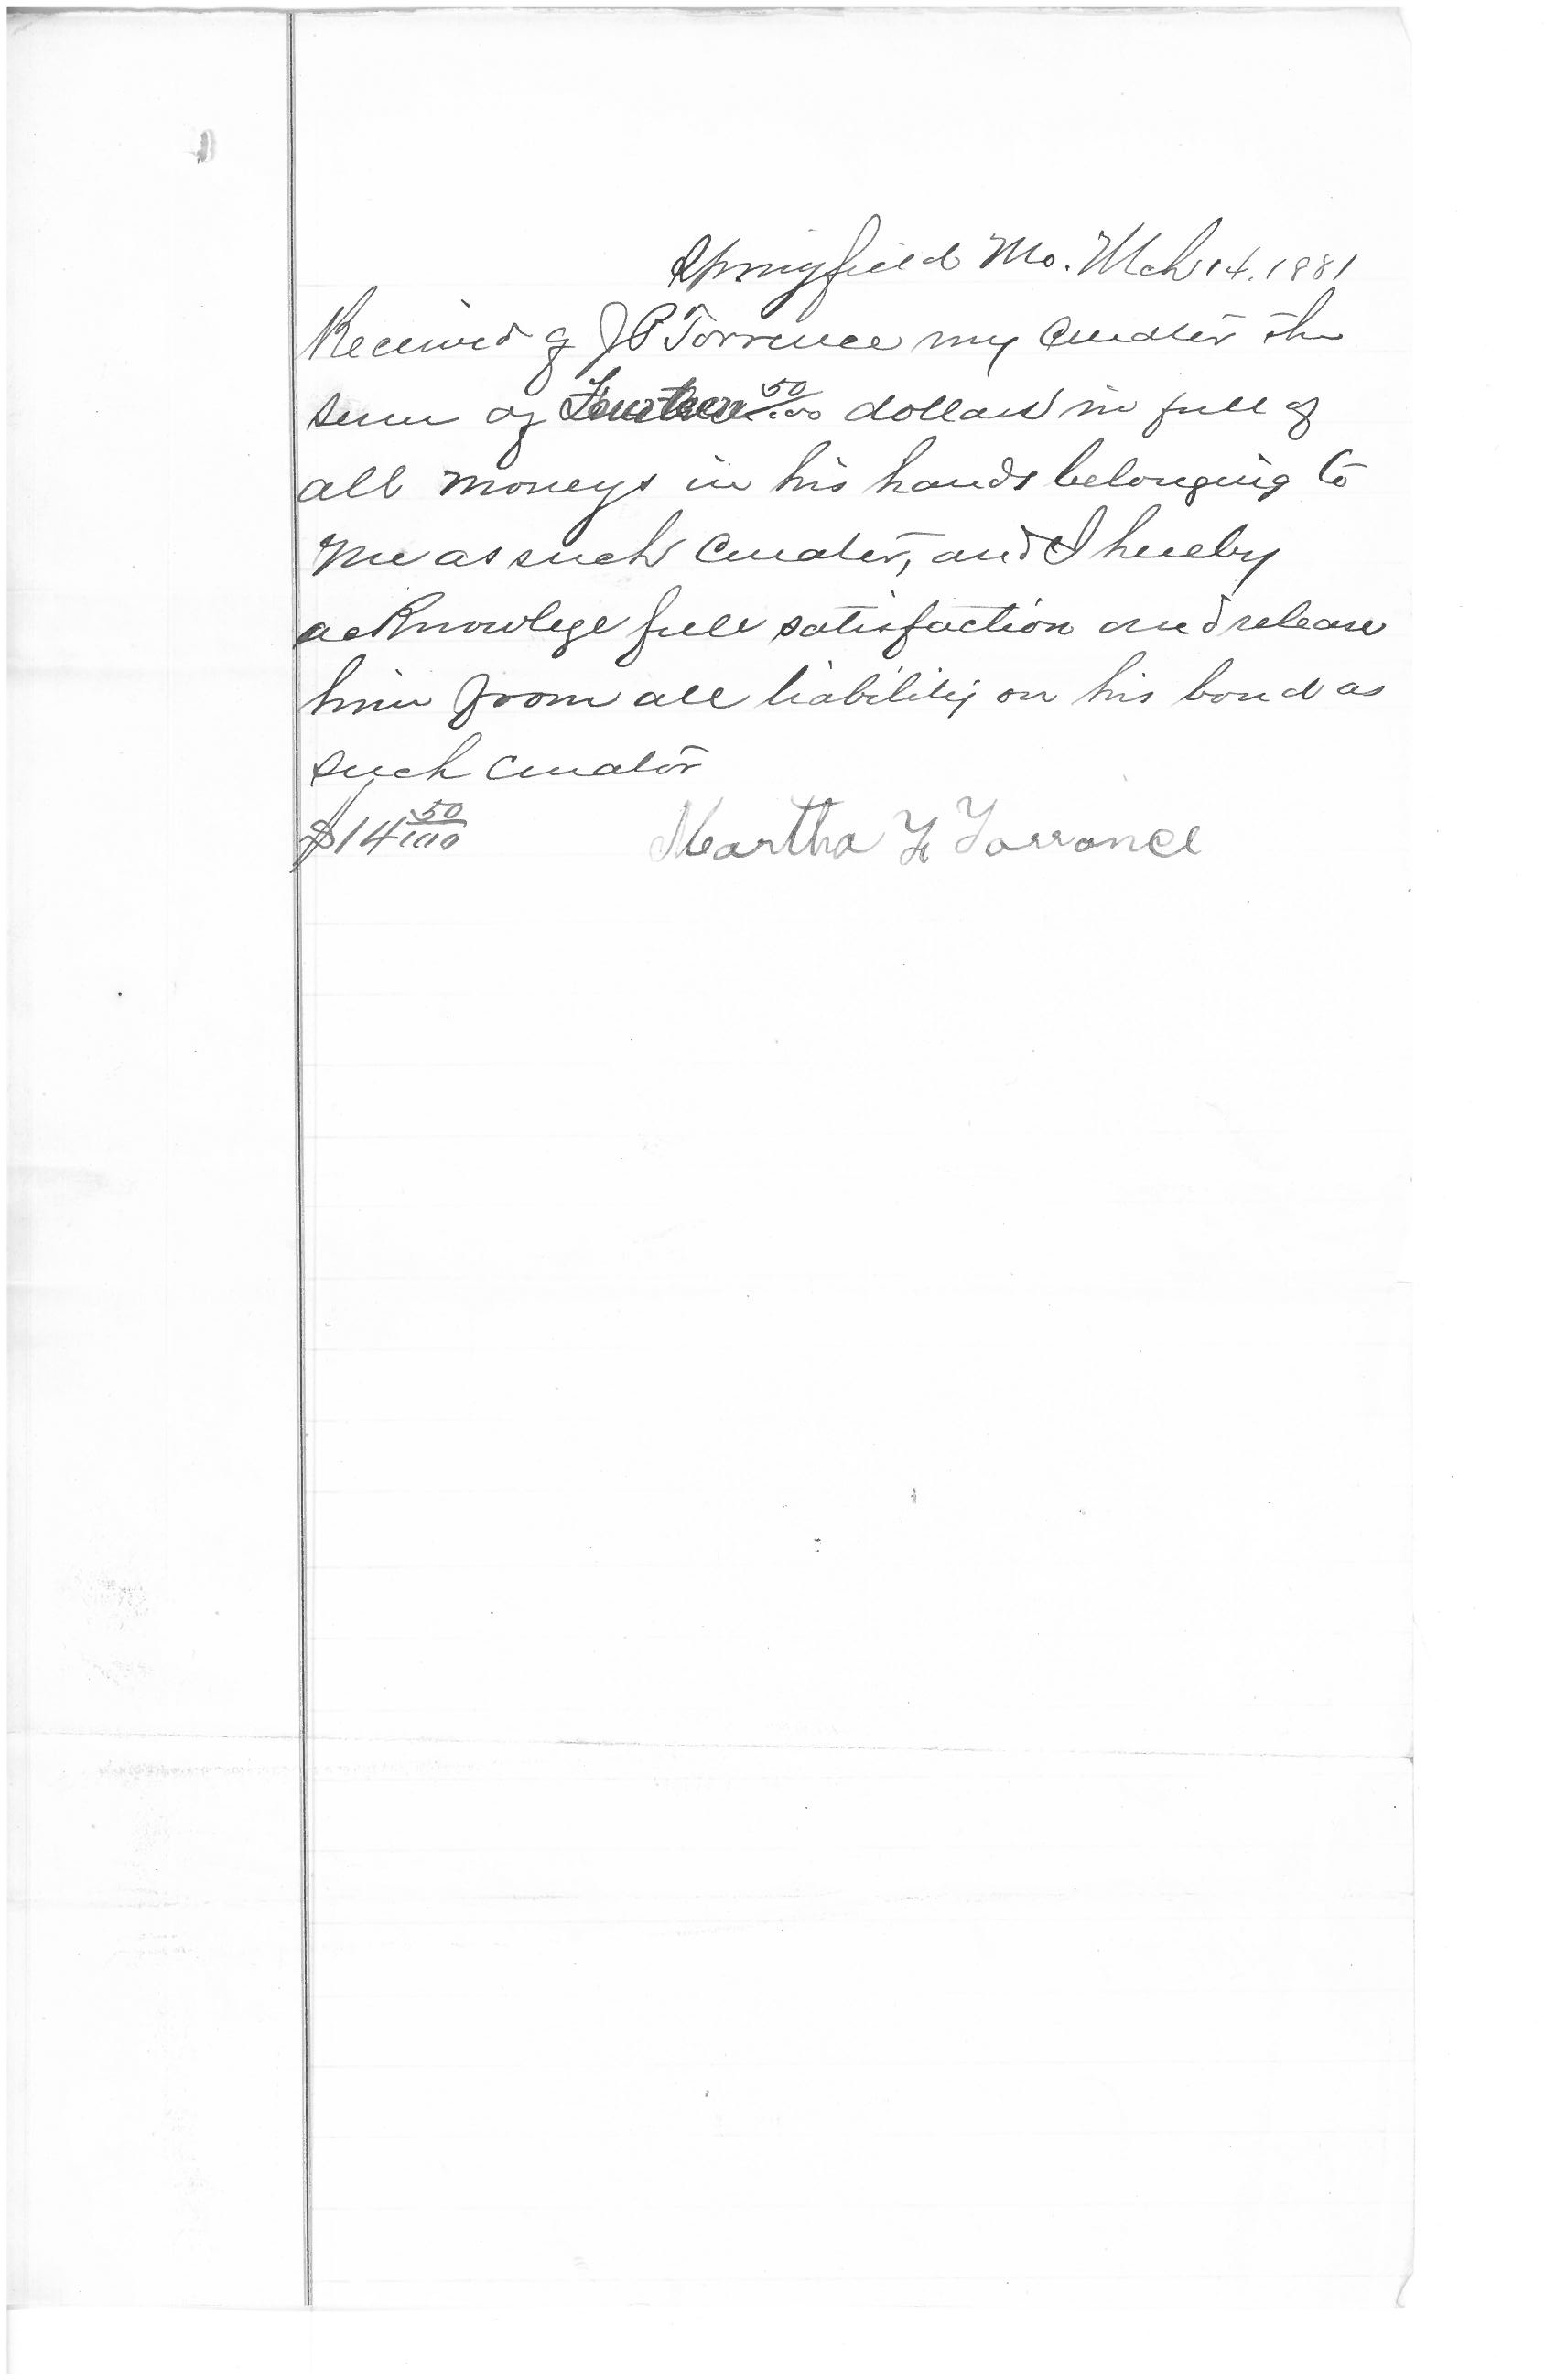 Springfield Mo. Mch 14. 1881
Received of J P Torrence my Curator the
sum of Fourteen 50/100 dollars in full of
all moneys in his hands belonging to
me as such Curator, and I hereby
acknowlege full satisfaction and release
him from all liability on his bond as
such Curator
$14 50/100 Martha F Torrance